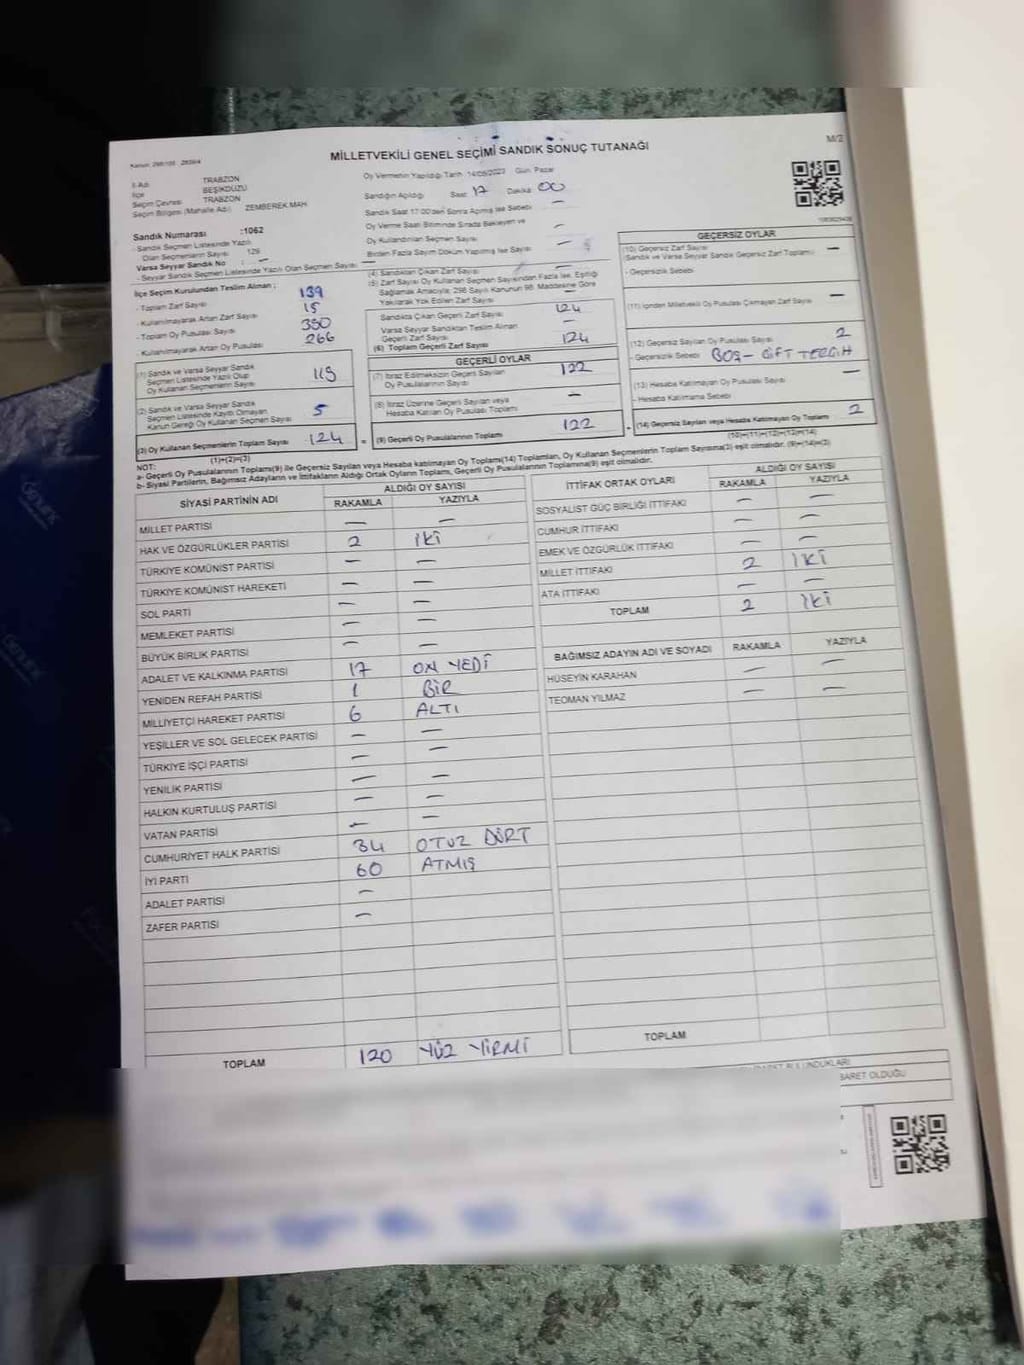 M/2
MİLLETVEKİLİ GENEL SEÇİMİ SANDIK SONUÇ TUTANAĞI
İl Adı TRABZON
İlçe BEŞİKDÜZÜ
Seçim Çevresi TRABZON
Seçim Bölgesi (Mahalle Adı) ZEMBEREK MAH
Oy Vermenin Yapıldığı Tarih 14/05/2023 Gün Pazar
Sandığın Açıldığı Saat 17 Dakika 00
Sandık Saat 17:00'den Sonra Açılmış İse Sebebi —
Oy Verme Saati Bitiminde Sırada Bekleyen ve
Oy Kullandırılan Seçmen Sayısı —
Birden Fazla Sayım Döküm Yapılmış İse Sayısı —
Sandık Numarası :1062
- Sandık Seçmen Listesinde Yazılı
Olan Seçmenlerin Sayısı 129
Varsa Seyyar Sandık No : —
- Seyyar Sandık Seçmen Listesinde Yazılı Olan Seçmen Sayısı —
İlçe Seçim Kurulundan Teslim Alınan ;
- Toplam Zarf Sayısı 139
- Kullanılmayarak Artan Zarf Sayısı 15
- Toplam Oy Pusulası Sayısı 390
- Kullanılmayarak Artan Oy Pusulası 266
(1) Sandık ve Varsa Seyyar Sandık
Seçmen Listesinde Yazılı Olup
Oy Kullanan Seçmenlerin Sayısı 119
(2) Sandık ve Varsa Seyyar Sandık
Seçmen Listesinde Kayıtlı Olmayan
Kanun Gereği Oy Kullanan Seçmen Sayısı 5
(3) Oy Kullanan Seçmenlerin Toplam Sayısı 124
(1)+(2)=(3)
(4) Sandıktan Çıkan Zarf Sayısı
(5) Zarf Sayısı Oy Kullanan Seçmen Sayısından Fazla İse, Eşitliği
Sağlamak Amacıyla, 298 Sayılı Kanunun 98. Maddesine Göre
Yakılarak Yok Edilen Zarf Sayısı —
Sandıkta Çıkan Geçerli Zarf Sayısı 124
Varsa Seyyar Sandıktan Teslim Alınan
Geçerli Zarf Sayısı —
(6) Toplam Geçerli Zarf Sayısı 124
GEÇERLİ OYLAR
(7) İtiraz Edilmeksizin Geçerli Sayılan
Oy Pusulalarının Sayısı 122
(8) İtiraz Üzerine Geçerli Sayılan veya
Hesaba Katılan Oy Pusulası Toplamı —
(9) Geçerli Oy Pusulalarının Toplamı 122
GEÇERSİZ OYLAR
(10) Geçersiz Zarf Sayısı —
(Sandık ve Varsa Seyyar Sandık Geçersiz Zarf Toplamı)
- Geçersizlik Sebebi
(11) İçinden Milletvekili Oy Pusulası Çıkmayan Zarf Sayısı —
(12) Geçersiz Sayılan Oy Pusulası Sayısı 2
- Geçersizlik Sebebi BOŞ - ÇİFT TERCİH
(13) Hesaba Katılmayan Oy Pusulası Sayısı —
- Hesaba Katılmama Sebebi
(14) Geçersiz Sayılan veya Hesaba Katılmayan Oy Toplamı 2
(10)+(11)+(12)+(13)=(14)
NOT:
a- Geçerli Oy Pusulalarının Toplamı(9) ile Geçersiz Sayılan veya Hesaba katılmayan Oy Toplamı(14) Toplamları, Oy Kullanan Seçmenlerin Toplam Sayısına(3) eşit olmalıdır. (9)+(14)=(3)
b- Siyasi Partilerin, Bağımsız Adayların ve İttifakların Aldığı Ortak Oyların Toplamı, Geçerli Oy Pusulalarının Toplamına(9) eşit olmalıdır.
SİYASİ PARTİNİN ADI ALDIĞI OY SAYISI
RAKAMLA YAZIYLA
MİLLET PARTİSİ — —
HAK VE ÖZGÜRLÜKLER PARTİSİ 2 İKİ
TÜRKİYE KOMÜNİST PARTİSİ — —
TÜRKİYE KOMÜNİST HAREKETİ — —
SOL PARTİ — —
MEMLEKET PARTİSİ — —
BÜYÜK BİRLİK PARTİSİ — —
ADALET VE KALKINMA PARTİSİ 17 ON YEDİ
YENİDEN REFAH PARTİSİ 1 BİR
MİLLİYETÇİ HAREKET PARTİSİ 6 ALTI
YEŞİLLER VE SOL GELECEK PARTİSİ — —
TÜRKİYE İŞÇİ PARTİSİ — —
YENİLİK PARTİSİ — —
HALKIN KURTULUŞ PARTİSİ — —
VATAN PARTİSİ — —
CUMHURİYET HALK PARTİSİ 34 OTUZ DÖRT
İYİ PARTİ 60 ATMIŞ
ADALET PARTİSİ —
ZAFER PARTİSİ —
TOPLAM 120 YÜZ YİRMİ
İTTİFAK ORTAK OYLARI ALDIĞI OY SAYISI
RAKAMLA YAZIYLA
SOSYALİST GÜÇ BİRLİĞİ İTTİFAKI — —
CUMHUR İTTİFAKI — —
EMEK VE ÖZGÜRLÜK İTTİFAKI — —
MİLLET İTTİFAKI 2 İKİ
ATA İTTİFAKI — —
TOPLAM 2 İKİ
BAĞIMSIZ ADAYIN ADI VE SOYADI RAKAMLA YAZIYLA
HÜSEYİN KARAHAN — —
TEOMAN YILMAZ — —
TOPLAM
BULUNDUKLARI
İBARET OLDUĞU